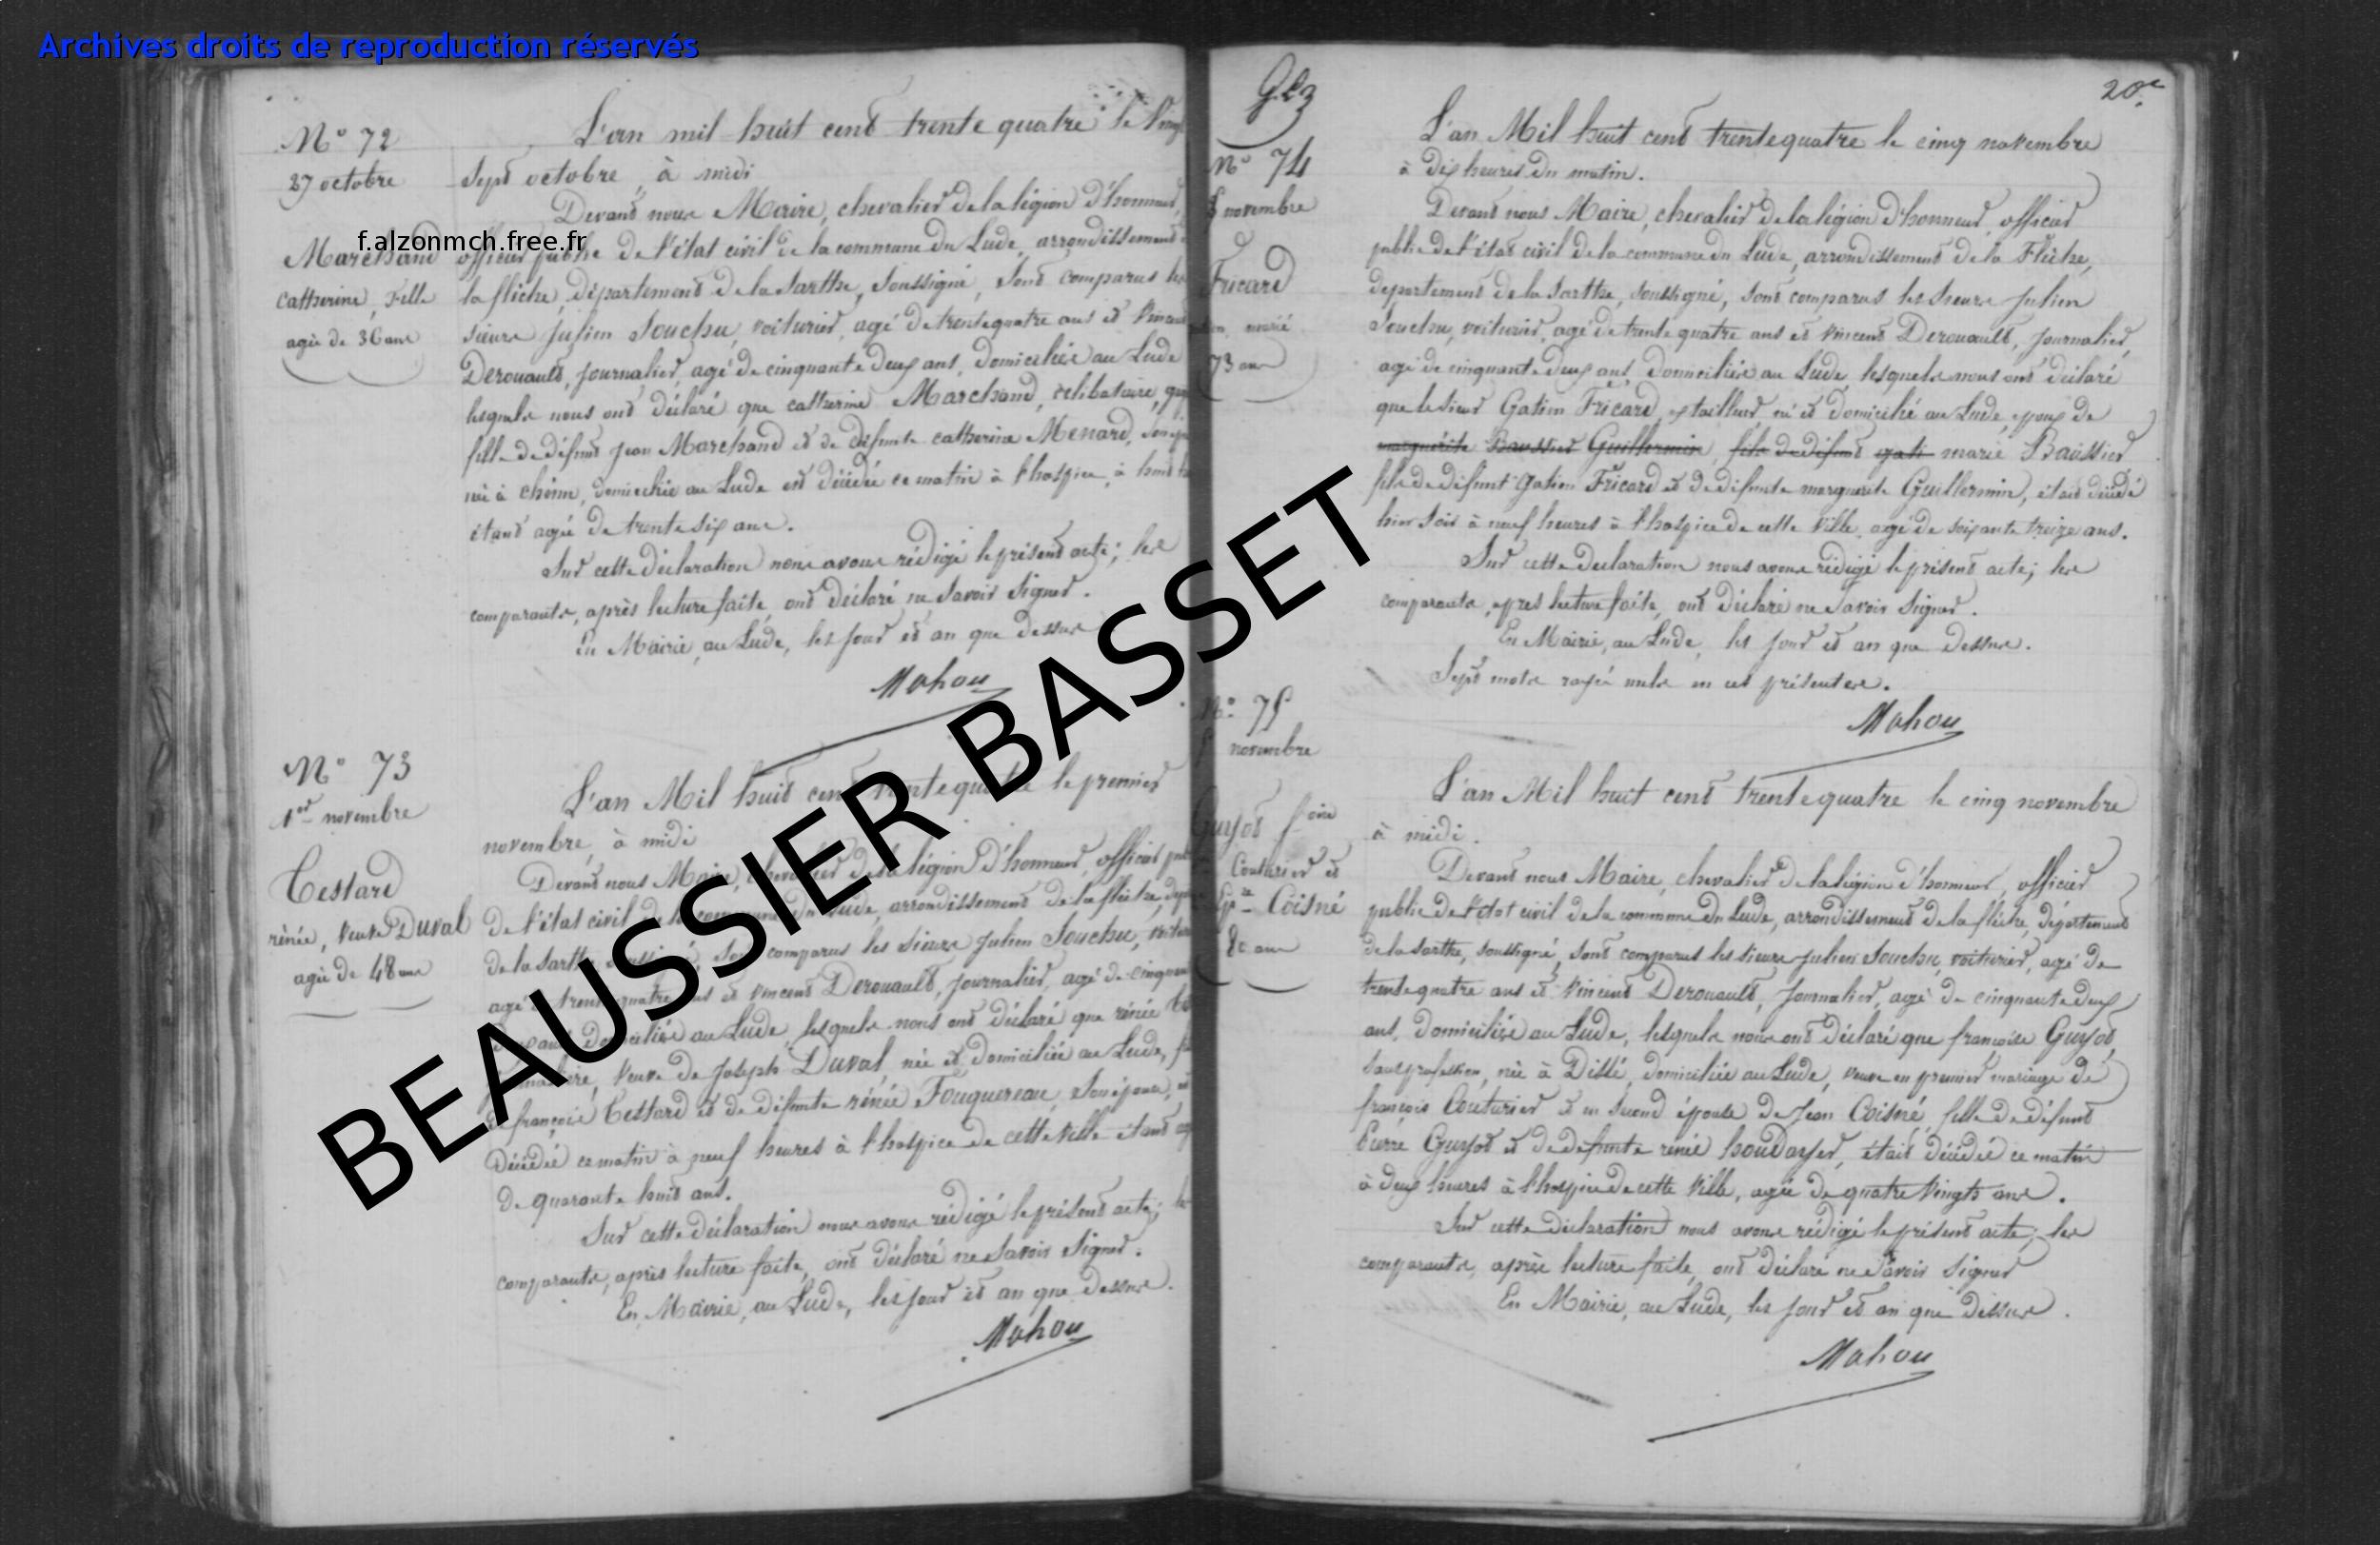 Archives droits de reproduction réservés
f.alzonmch.free.fr
BEAUSSIER BASSET
N° 72
27 octobre
Marchand
catherine, fille
agée de 36 ans
L'an mil huit cent trente quatre le vingt
sept octobre, à midi
Devant nous Maire, chevalier de la légion d'honneur,
officier public de l'état civil de la commune du Lude, arrondissement
la flèche, département de la Sarthe, soussigné, sont comparus les
sieurs Julien Souchu, voiturier, agé de trente quatre ans et Vincent
Derouault, journalier, agé de cinquante deux ans, domiciliés au Lude
lesquels nous ont déclaré que catherine Marchand, célibataire,
fille de défunt Jean Marchand et de défunte catherine Menard,
née à, domiciliée au Lude est décédée ce matin à l'hospice, à huit
étant agée de trente six ans.
Sur cette déclaration nous avons rédigé le présent acte; les
comparants, après lecture faite, ont déclaré ne savoir signer.
En Mairie, au Lude, les jour et an que dessus
Mahou
N° 73
1er novembre
Testard
rénée, veuve Duval
agée de 48 ans
L'an Mil huit cent trente quatre le premier
novembre, à midi
Devant nous Maire, chevalier de la légion d'honneur, officier
de l'état civil de la commune du Lude, arrondissement de la flèche,
de la Sarthe soussigné, sont comparus les sieurs Julien Souchu,
agé de trente quatre ans et Vincent Derouault, journalier, agé de cinquante
deux ans, domiciliés au Lude, lesquels nous ont déclaré que rénée
journalière, veuve de Joseph Duval, née et domiciliée au Lude,
de françois Testard et de défunte rénée Fouquereau, son épouse,
décédée ce matin à neuf heures à l'hospice de cette ville étant
de quarante huit ans.
Sur cette déclaration nous avons rédigé le présent acte;
comparants, après lecture faite, ont déclaré ne savoir signer.
En Mairie, au Lude, les jour et an que dessus.
Mahou
20e
N° 74
5 novembre
Fricard
marié
73 ans
L'an Mil huit cent trente quatre le cinq novembre
à dix heures du matin.
Devant nous Maire, chevalier de la légion d'honneur, officier
public de l'état civil de la commune du Lude, arrondissement de la Flèche,
département de la Sarthe, soussigné, sont comparus les sieurs Julien
Souchu, voiturier, agé de trente quatre ans et Vincent Derouault, journalier,
agé de cinquante deux ans, domiciliés au Lude, lesquels nous ont déclaré
que le sieur Gatien Fricard, extailleur, né et domicilié au Lude, époux de
marguérite Baussier Guillermin, fils de défunt gati marie Baussier
fils de défunt Gatien Fricard et de défunte marguerite Guillermin, était décédé
hier soir à neuf heures à l'hospice de cette ville, agé de soixante treize ans.
Sur cette déclaration nous avons rédigé le présent acte; les
comparants, après lecture faite, ont déclaré ne savoir signer.
En Mairie, au Lude, les jour et an que dessus.
Sept mots rayés nuls en ces présentes.
Mahou
N° 75
5 novembre
Guyot foise
Couturier et
Coisné
80 ans
L'an Mil huit cent trente quatre le cinq novembre
à midi.
Devant nous Maire, chevalier de la légion d'honneur, officier
public de l'état civil de la commune du Lude, arrondissement de la flèche, département
de la Sarthe, soussigné, sont comparus les sieurs Julien Souchu, voiturier, agé de
trente quatre ans et Vincent Derouault, journalier, agé de cinquante deux
ans, domiciliés au Lude, lesquels nous ont déclaré que françoise Guyot,
sans profession, née à Dissé, domiciliée au Lude, veuve en premier mariage de
françois Couturier et en second épouse de Jean Coisné, fille de défunt
Pierre Guyot et de défunte rénée houdayer, était décédée ce matin
à deux heures à l'hospice de cette ville, agée de quatre vingts ans.
Sur cette déclaration nous avons rédigé le présent acte; les
comparants, après lecture faite, ont déclaré ne savoir signer
En Mairie, au Lude, les jour et an que dessus.
Mahou